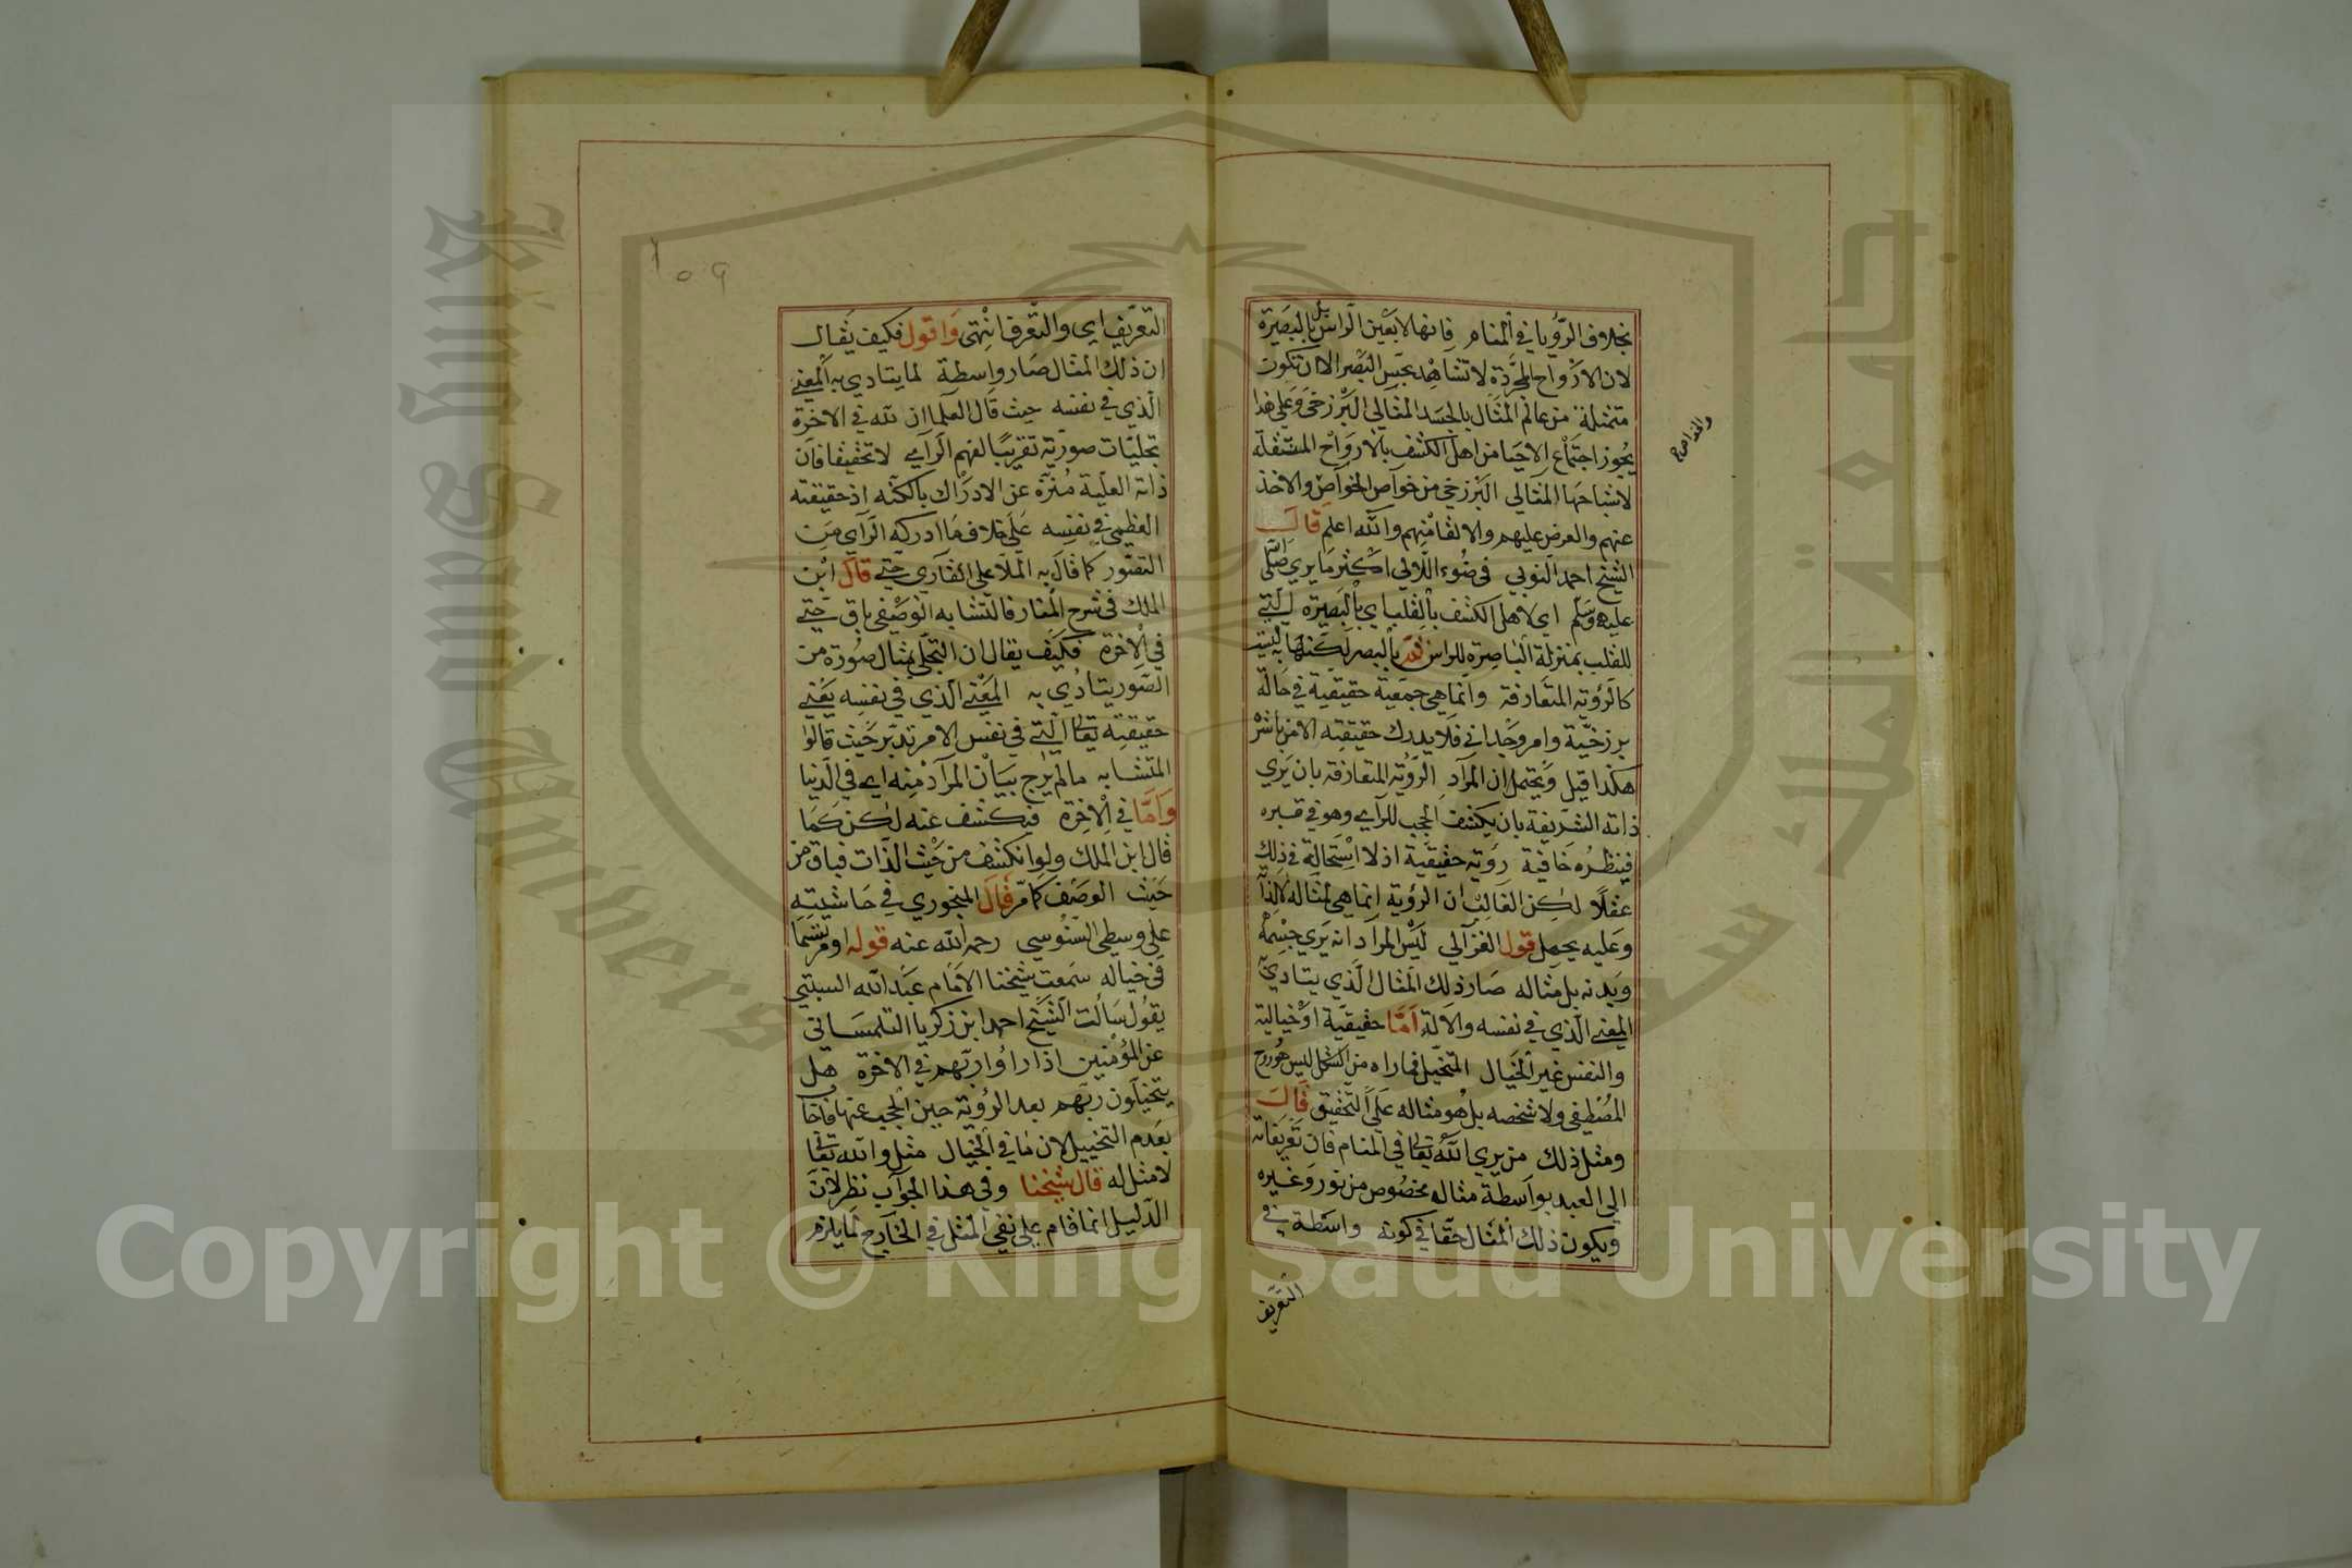 بخلاف الرؤيا في المنام فانها لا بعين الراس بل بالبصيرة
لان الارواح المجردة لا تشاهد بحس البصر الا ان تكون
متمثلة من عالم المثال بالجسد المثالي البرزخي وعلى هذا
يجوز اجتماع الاحيا من اهل الكشف بالارواح المتنقلة
لاشباحها المثالي البرزخي من خواص الخواص والاخذ
عنهم والعرض عليهم والالقا منهم والله اعلم قال
الشيخ احمد النوبي في ضوء اللالي اكثر ما يرى صلى الله
عليه وسلم اي لاهل الكشف بالقلب اي بالبصيرة التي
للقلب بمنزلة الباصرة للراس ثم بالبصر لكنها ليست
كالرؤية المتعارفة وانما هي جمعية حقيقية في حالة
برزخية وامر وجداني فلا يدرك حقيقته الا من باشر
هكذا قيل ويحتمل ان المراد الرؤية المتعارفة بان يرى
ذاته الشريفة بان يكشف الحجب للرآي وهو في قبره
فينظره خافية رؤية حقيقية اذ لا استحالة في ذلك
عقلا لكن الغالب ان الرؤية انما هي لمثاله لا لذاته
وعليه يحمل قول الغزالي ليس المراد انه يرى جسمه
وبدنه بل مثاله صار ذلك المثال الذي يتادى
المعنى الذي في نفسه والالة اما حقيقية او خيالية
والنفس غير الخيال المتخيل فما راه من الشكل ليس هو روح
المصطفى ولا شخصه بل هو مثاله على التحقيق قال
ومثل ذلك من يرى الله تعالى في المنام فان تعريفاته
الى العبد بواسطة مثال مخصوص من نور وغيره
ويكون ذلك المثال حقا في كونه واسطة في
التعريف
التعريف اي والتعرف انتهى واقول فكيف يقال
ان ذلك المثال صار واسطة لما يتادى به المعنى
الذي في نفسه حيث قال العلما ان لله في الاخرة
تجليات صورية تقريبا لفهم الرآي لا تحقيقا فان
ذاته العلية منزه عن الادراك بالكنه اذ حقيقته
العظمى في نفسه على خلاف ما ادركه الرآي من
التصور كما قال به الملا علي القاري حتى قال ابن
الملك في شرح المنار فالتشابه الوصفي باق حتى
في الاخرة فكيف يقال ان التجلي بمثال صورة من
الصور يتادى به المعنى الذي في نفسه يعني
حقيقته تعالى التي في نفس الامر تدبر حيث قالوا
المتشابه ما لم يرج بيان المراد منه اي في الدنيا
واما في الاخرة فيكشف عنه لكن كما
قال ابن الملك ولو انكشف من حيث الذات فباق من
حيث الوصف كما مر قال المنجوري في حاشيته
على وسطى السنوسي رحمه الله عنه قوله او مرتسما
في خياله سمعت شيخنا الامام عبد الله السبتي
يقول سالت الشيخ احمد ابن زكريا التلمساني
عن المؤمنين اذا راوا ربهم في الاخرة هل
يتخيلون ربهم بعد الرؤية حين الحجب عنها فاجا
بعدم التخييل لان ما في الخيال مثل والله تعالى
لا مثل له قال شيخنا وفي هذا الجواب نظر لان
الدليل انما قام على نفي المثل في الخارج لما يلزم